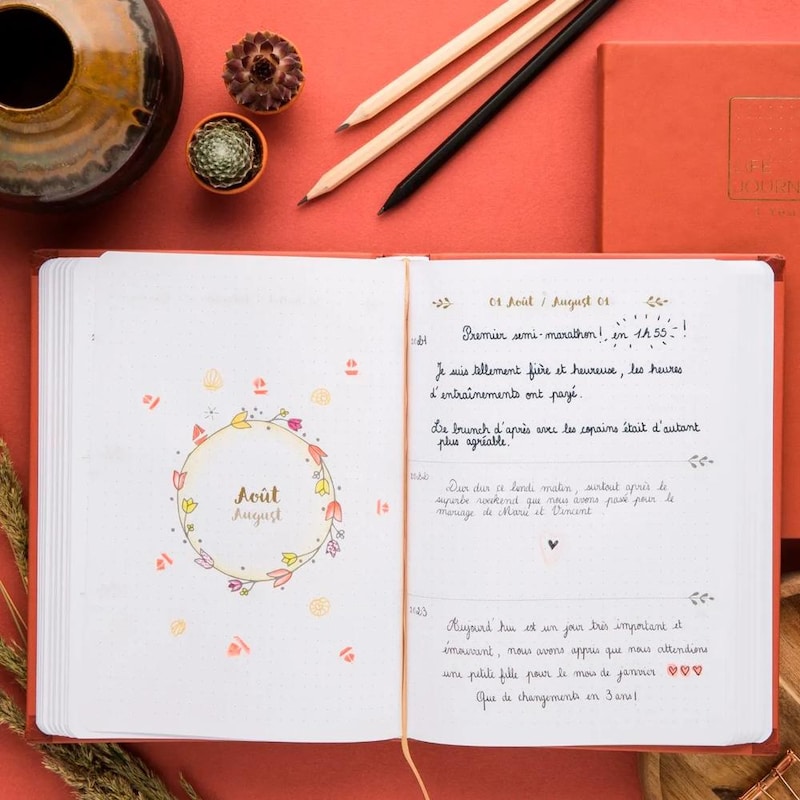 JOURN
Août
August
01 Août / August 01
2021
Premier semi-marathon ! en 1h55 !
Je suis tellement fière et heureuse, les heures
d'entraînements ont payé.
Le brunch d'après avec les copains était d'autant
plus agréable.
2022
Dur dur ce lundi matin, surtout après le
superbe weekend que nous avons passé pour le
mariage de Marie et Vincent.
2023
Aujourd'hui est un jour très important et
émouvant, nous avons appris que nous attendions
une petite fille pour le mois de janvier ♡♡♡
Que de changements en 3 ans!